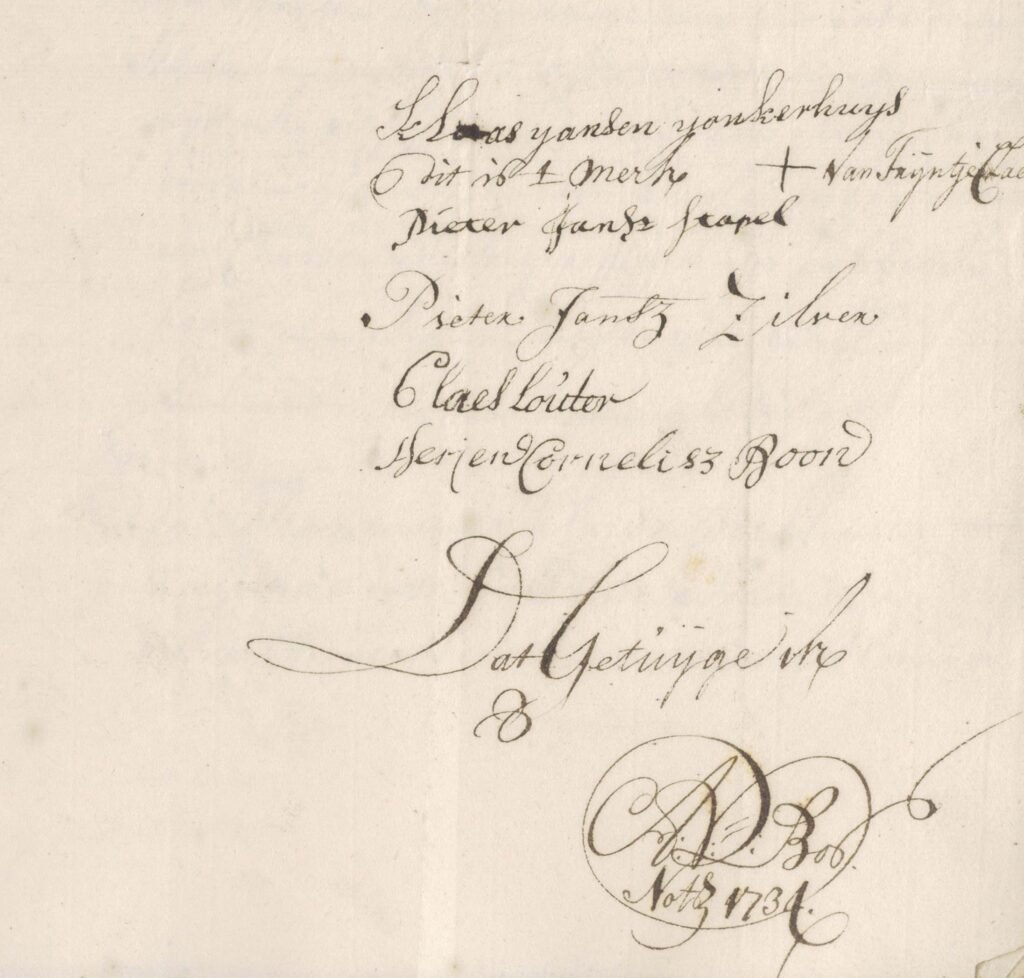 Klaas yansen yonkerhuys
dit is t merk + van Trijntje Clae
Pieter Jansz stapel
Pieter Jansz Zilver
Claes Louter
Cornelisz Boon
Dat Getuijge ik
Bos.
Notˢ 1734.